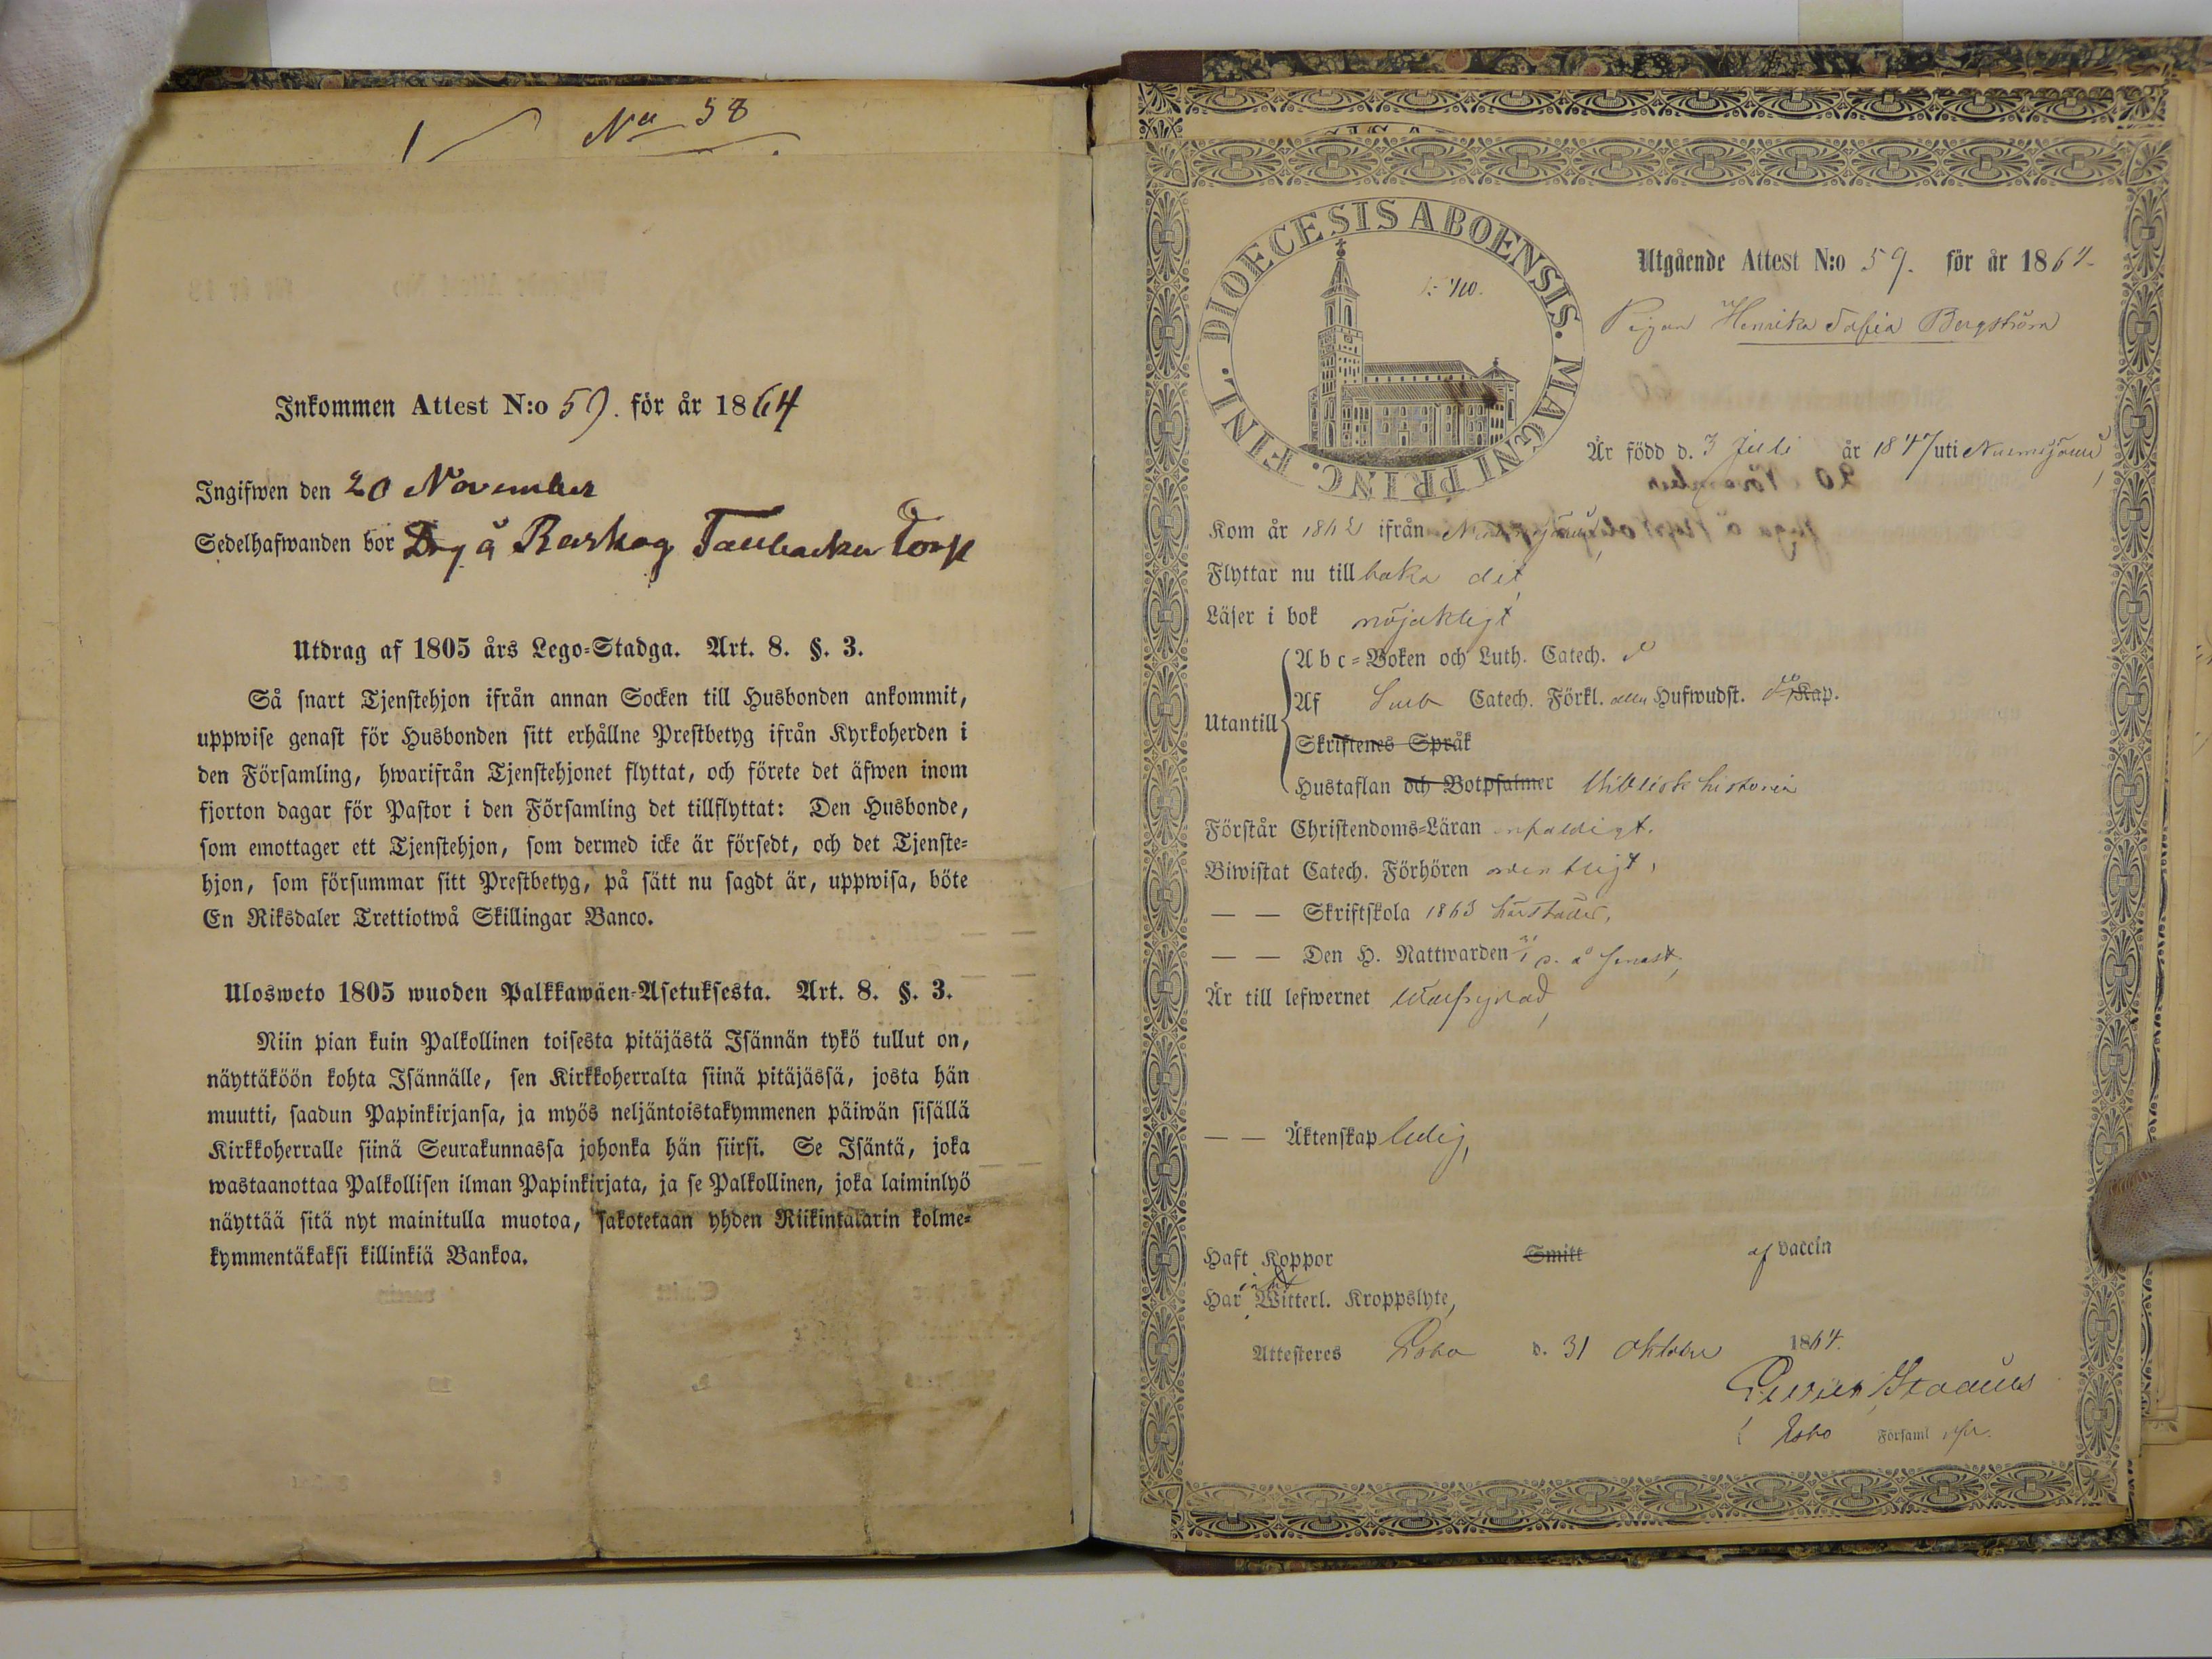 1 No 58
Inkommen Attest N:o 59. för år 1864
Ingifwen den 20 November
Sedelhafwanden bor Drg å Raskog Torp
Utdrag af 1805 års Lego-Stadga. Art. 8. §. 3.
Så snart Tjenstehjon ifrån annan Socken till Husbonden ankommit,
uppwise genast för Husbonden sitt erhållne Prestbetyg ifrån Kyrkoherden i
den Församling, hwarifrån Tjenstehjonet flyttat, och förete det äfwen inom
fjorton dagar för Pastor i den Församling det tillflyttat: Den Husbonde,
som emottager ett Tjenstehjon, som dermed icke är försedt, och det Tjenste-
hjon, som försummar sitt Prestbetyg, på sätt nu sagdt är, uppwisa, böte
En Riksdaler Trettiotwå Skillingar Banco.
Ulosweto 1805 wuoden Palkkawäen-Asetuksesta. Art. 8. §. 3.
Niin pian kuin Palkollinen toisesta pitäjästä Isännän tykö tullut on,
näyttäköön kohta Isännälle, sen Kirkkoherralta siinä pitäjässä, josta hän
muutti, saadun Papinkirjansa, ja myös neljäntoistakymmenen päiwän sisällä
Kirkkoherralle siinä Seurakunnassa johonka hän siirsi. Se Isäntä, joka
wastaanottaa Palkollisen ilman Papinkirjata, ja se Palkollinen, joka laiminlyö
näyttää sitä nyt mainitulla muotoa, sakotetaan yhden Riikintalarin kolme-
kymmentäkaksi killinkiä Bankoa.
DIOECESIS ABOENSIS. MAGNI PRINC. FINL.
Utgående Attest N:o 59. för år 1864
Pigan Henrika Sofia Bergström
Är född d. 3 Juli år 1847 uti Nurmijärvi
Kom år 1862 ifrån
Flyttar nu tillbaka dit
Läser i bok nöjaktigt
Utantill
Abc-Boken och Luth. Catech. d
Af Catech. Förkl. Hufwudst. Kap.
Skriftenes Språk
Hustaflan och Botpsalmer Biblisk historia
Förstår Christendoms-Läran enfaldigt.
Biwistat Catech. Förhören ordentligt,
— — Skriftskola 1863 härstädes,
— — Den H. Nattwarden d. å senast,
Är till lefwernet wälfrejdad,
— — Äktenskap ledig,
Haft Koppor Smitt af vaccin
Har intet Witterl. Kroppslyte,
Attesteres Esbo d. 31 Oktober 1864.
i Esbo Församl